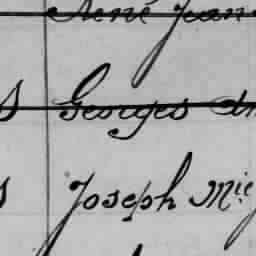 René Juan
Georges
Joseph Mie